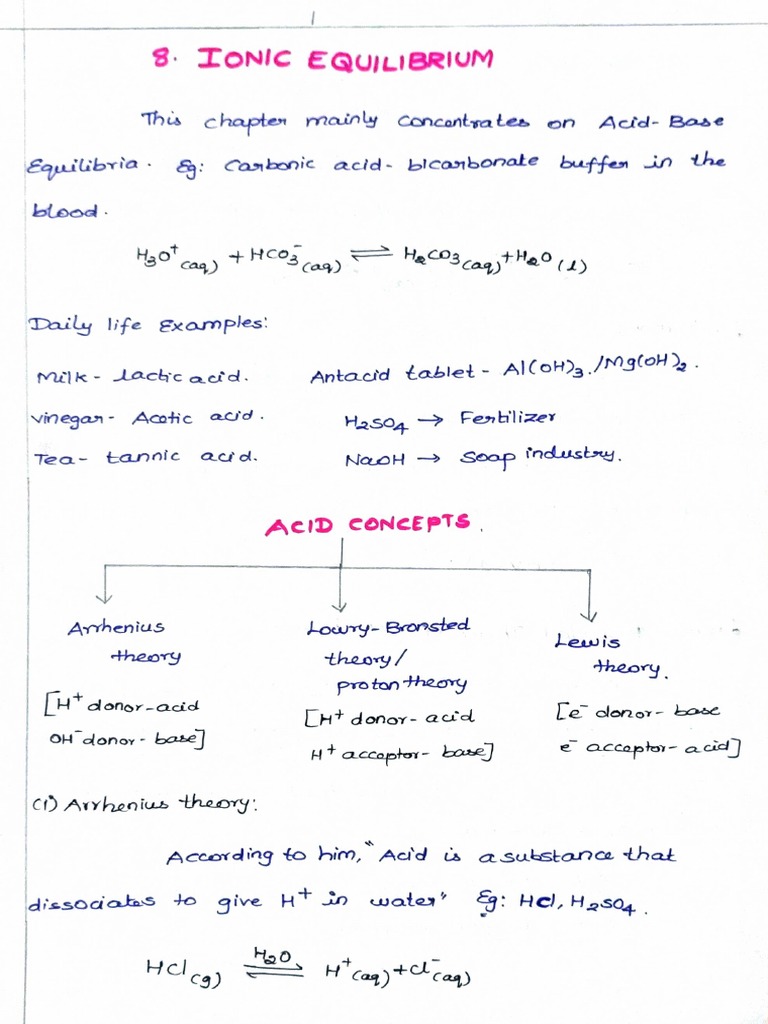 1
8. IONIC EQUILIBRIUM
This chapter mainly concentrates on Acid-Base
Equilibria. Eg: Carbonic acid- bicarbonate buffer in the
blood.
H₃O⁺(aq) + HCO₃⁻(aq) ⇌ H₂CO₃(aq) + H₂O(l)
Daily life Examples:
Milk- lactic acid. Antacid tablet- Al(OH)₃./Mg(OH)₂.
Vinegar- Acetic acid. H₂SO₄ → Fertilizer
Tea- tannic acid. NaOH → Soap industry.
ACID CONCEPTS.
Arrhenius Lowry-Bronsted Lewis
theory theory/ theory.
proton theory
[H⁺ donor-acid [H⁺ donor- acid [e⁻ donor- base
OH⁻ donor- base] H⁺ acceptor- base] e⁻ acceptor- acid]
(1) Arrhenius theory:
According to him, "Acid is a substance that
dissociates to give H⁺ in water" Eg: HCl, H₂SO₄.
HCl(g) ⇌ H₂O H⁺(aq) + Cl⁻(aq)